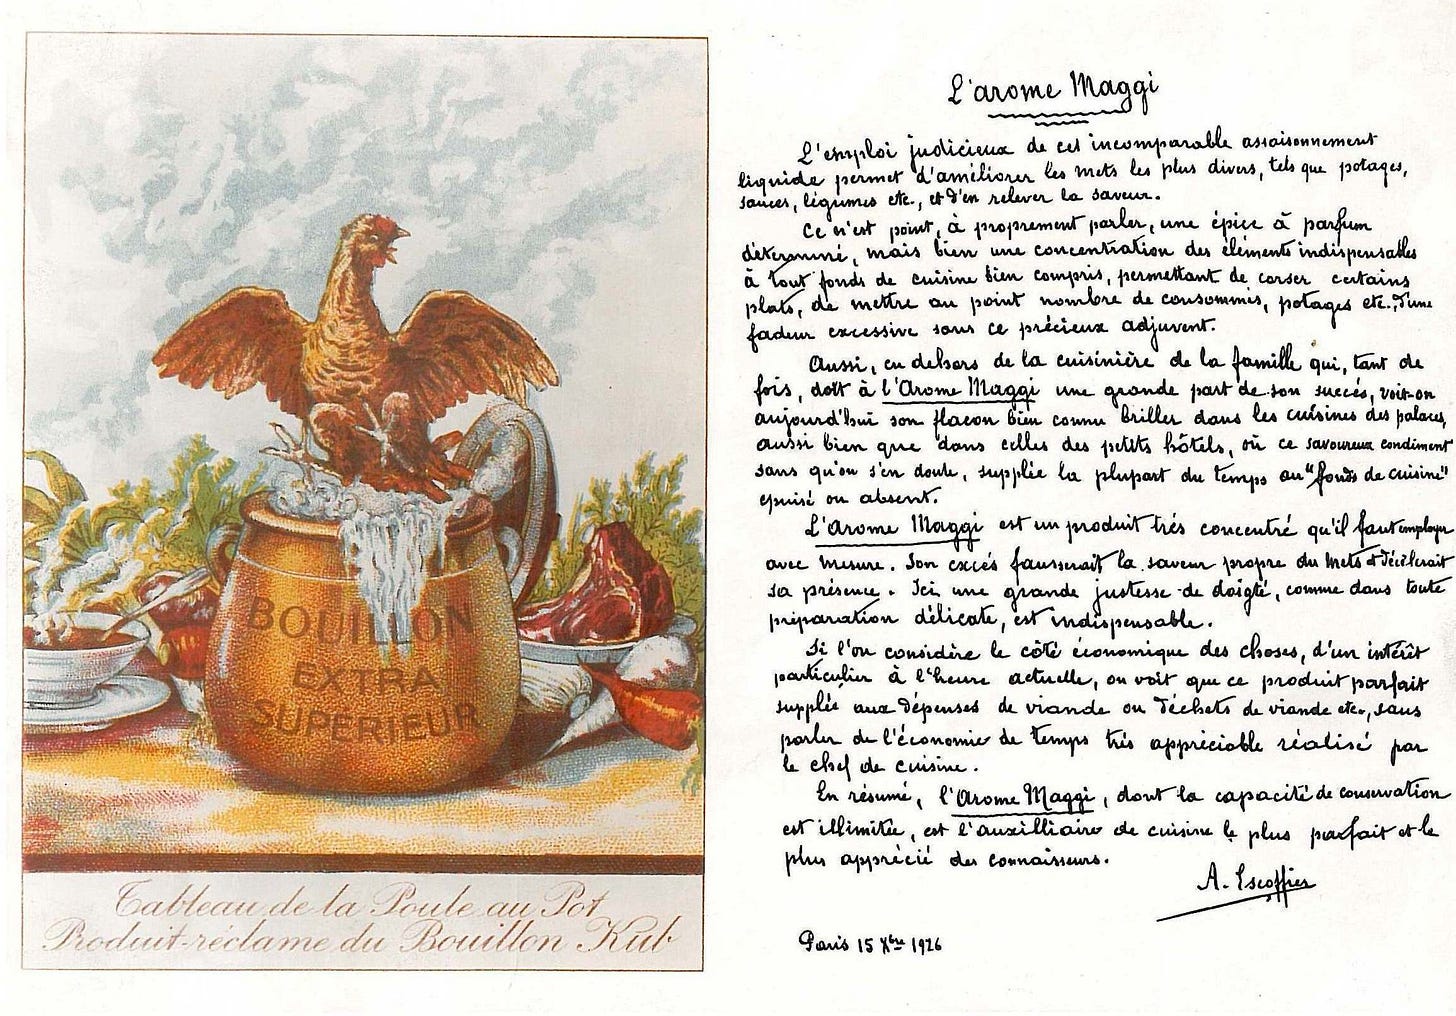 BOUILLON
EXTRA
SUPERIEUR
Tableau de la Poule au Pot
Produit-réclame du Bouillon Kub
L'arome Maggi
L'emploi judicieux de cet incomparable assaisonnement
liquide permet d'améliorer les mets les plus divers, tels que potages,
sauces, légumes etc., et d'en relever la saveur.
Ce n'est point, à proprement parler, une épice à parfum
déterminé, mais bien une concentration des éléments indispensables
à tout fonds de cuisine bien compris, permettant de corser certains
plats, de mettre au point nombre de consommés, potages etc., d'une
fadeur excessive sans ce précieux adjuvent.
Aussi, en dehors de la cuisinière de la famille qui, tant de
fois, doit à l'Arome Maggi une grande part de son succés, voit-on
aujourd'hui son flacon bien connu briller dans les cuisines des palaces,
aussi bien que dans celles des petits hôtels, où ce savoureux condiment
sans qu'on s'en doute, supplée la plupart du temps au "fonds de cuisine"
épuisé ou absent.
L'Arome Maggi est un produit trés concentré qu'il faut employer
avec mesure. Son excés fausserait la saveur propre du mets et décèlerait
sa présence. Ici une grande justesse de doigté, comme dans toute
préparation délicate, est indispensable.
Si l'on considère le côté économique des choses, d'un intérêt
particulier à l'heure actuelle, on voit que ce produit parfait
supplée aux dépenses de viande ou déchets de viande etc., sans
parler de l'économie de temps trés appréciable réalisé par
le chef de cuisine.
En résumé, l'Arome Maggi, dont la capacité de conservation
est illimitée, est l'auxilliaire de cuisine le plus parfait et le
plus apprécié des connaisseurs.
A. Escoffier
Paris 15 Xbre 1926